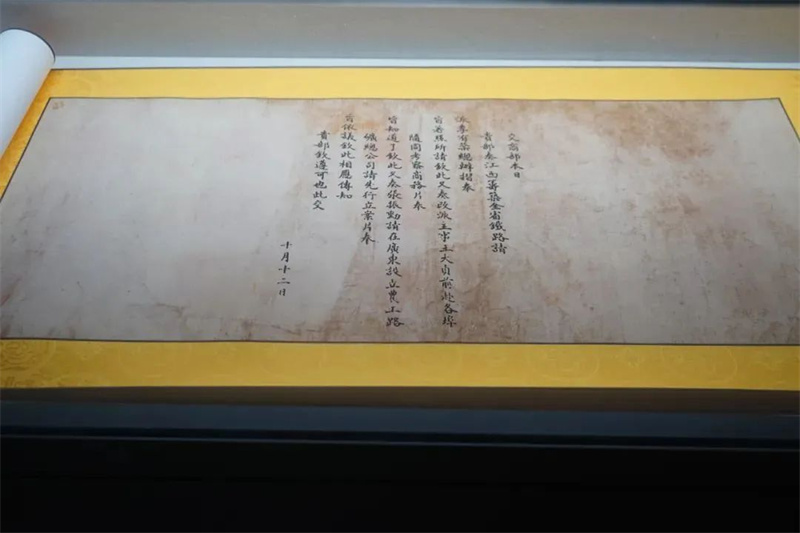 交商部本日
貴部奏江西籌築全省鐵路請
派李有棻總辦摺奉
旨著照所請欽此又奏改派主事王大貞前赴各埠
隨同考察商務片奉
旨知道了欽此又奏張振勳請在廣東設立農工路
礦總公司請先行立案片奉
旨依議欽此相應傳知
貴部欽遵可也此交
十月十二日